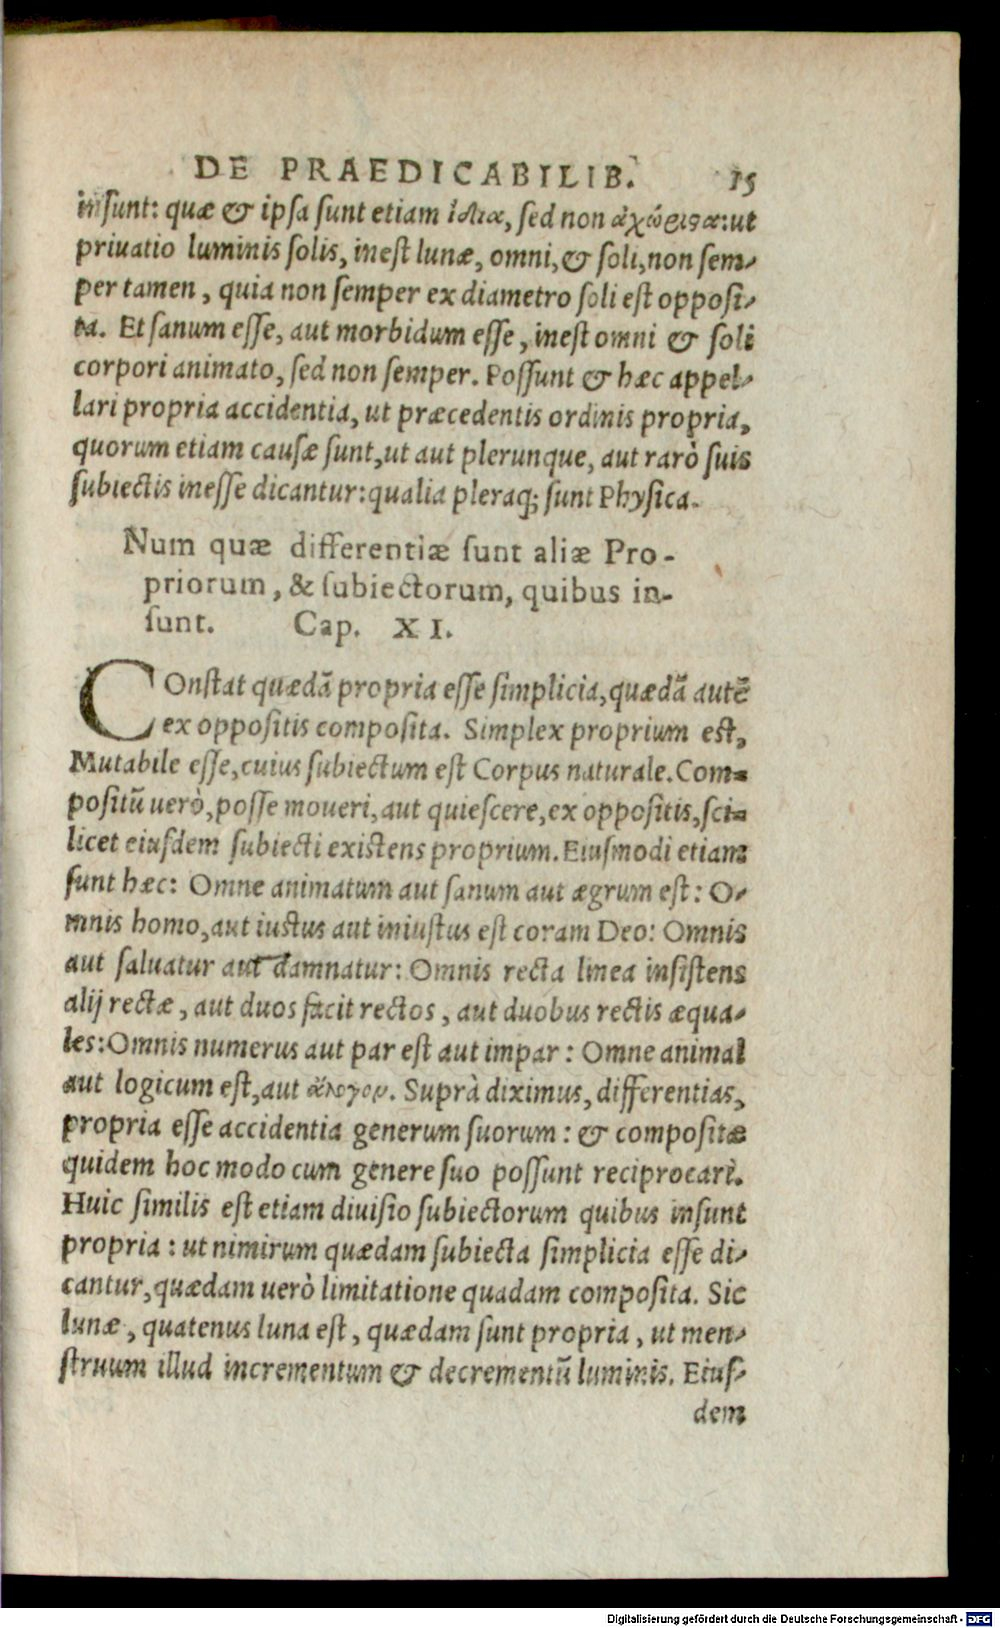 DE PRAEDICABILIB. 15
insunt: quæ & ipsa sunt etiam ἴδια, sed non ἀχώριςα: ut
priuatio luminis solis, inest lunæ, omni, & soli, non sem-
per tamen, quia non semper ex diametro soli est opposi-
ta. Et sanum esse, aut morbidum esse, inest omni & soli
corpori animato, sed non semper. Possunt & hæc appel-
lari propria accidentia, ut præcedentis ordinis propria,
quorum etiam causæ sunt, ut aut plerunque, aut rarò suis
subiectis inesse dicantur: qualia pleraq; sunt Physica.
Num quæ differentiæ sunt aliæ Pro-
priorum, & subiectorum, quibus in-
sunt. Cap. XI.
COnstat quædã propria esse simplicia, quædã autẽ
ex oppositis composita. Simplex proprium est,
Mutabile esse, cuius subiectum est Corpus naturale. Com-
positũ uerò, posse moueri, aut quiescere, ex oppositis, sci-
licet eiusdem subiecti existens proprium. Eiusmodi etiam
sunt hæc: Omne animatum aut sanum aut ægrum est: O-
mnis homo, aut iustus aut iniustus est coram Deo: Omnis
aut saluatur aut damnatur: Omnis recta linea insistens
alij rectæ, aut duos facit rectos, aut duobus rectis æqua-
les: Omnis numerus aut par est aut impar: Omne animal
aut logicum est, aut ἄλογον. Suprà diximus, differentias,
propria esse accidentia generum suorum: & compositæ
quidem hoc modo cum genere suo possunt reciprocari.
Huic similis est etiam diuisio subiectorum quibus insunt
propria: ut nimirum quædam subiecta simplicia esse di-
cantur, quædam uerò limitatione quadam composita. Sic
lunæ, quatenus luna est, quædam sunt propria, ut men-
struum illud incrementum & decrementũ luminis. Eius-
dem
Digitalisierung gefördert durch die Deutsche Forschungsgemeinschaft - DFG